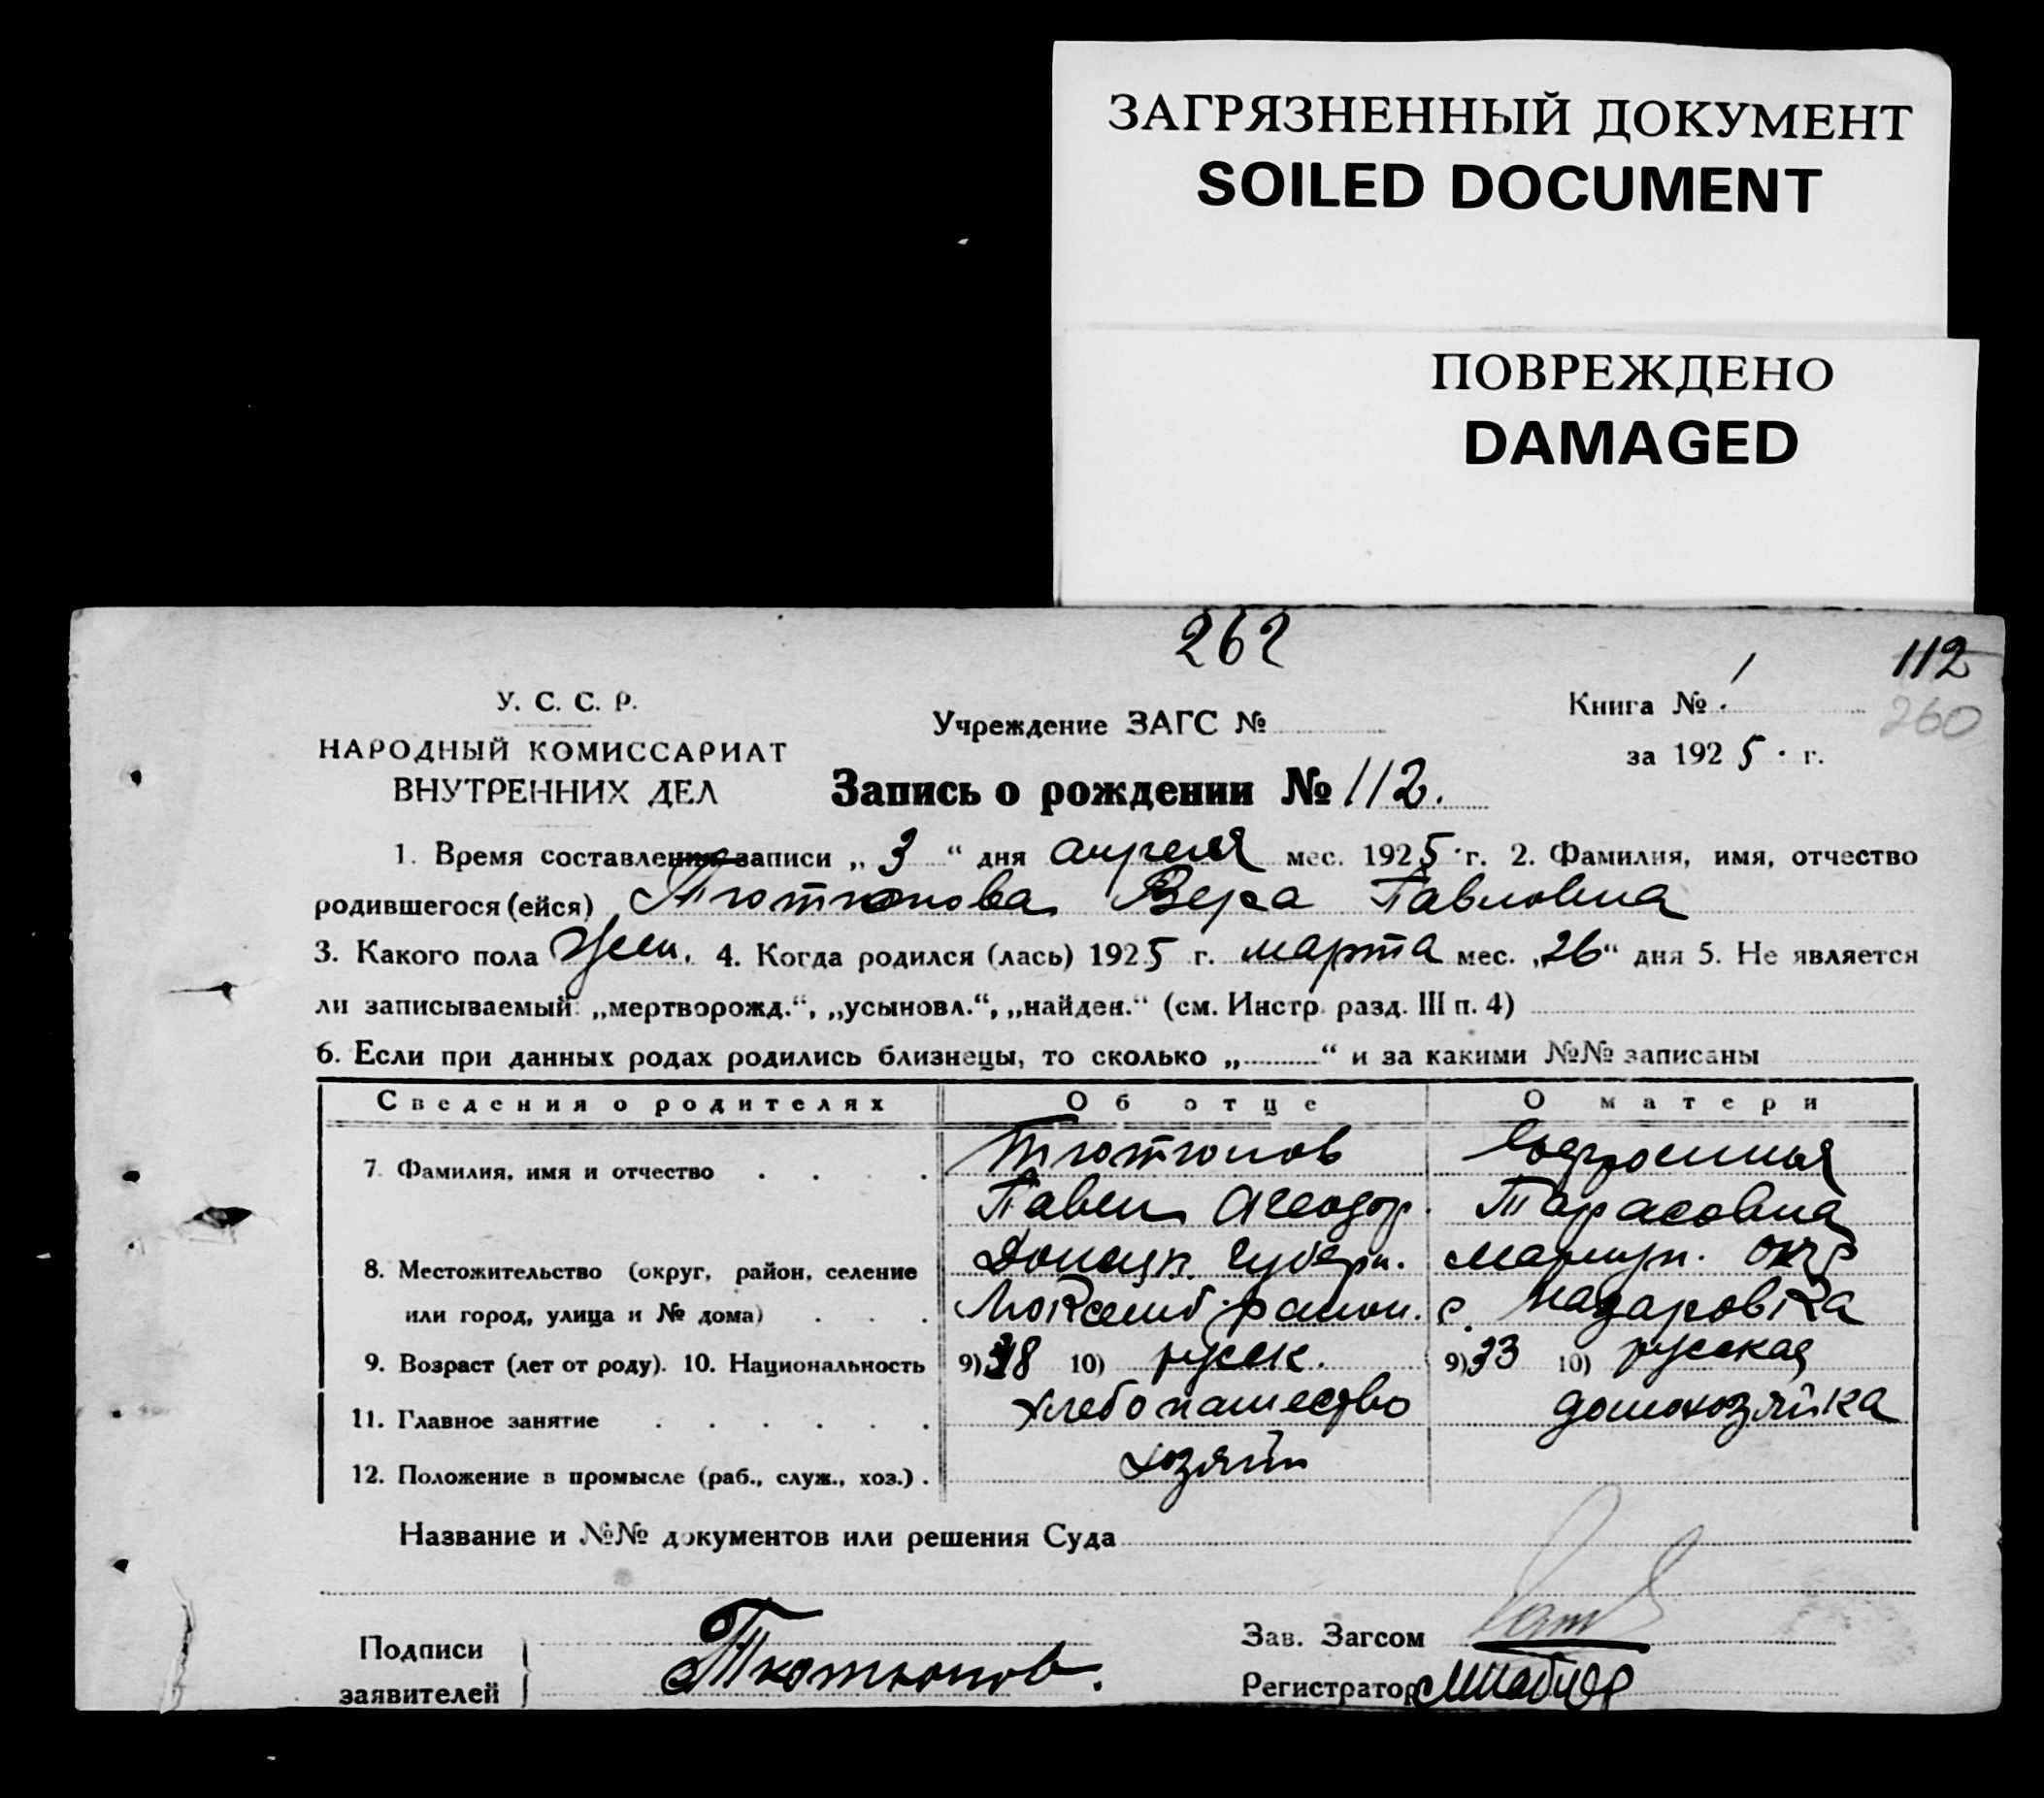 ЗАГРЯЗНЕННЫЙ ДОКУМЕНТ
SOILED DOCUMENT
ПОВРЕЖДЕНО
DAMAGED
262
112
260
У. С. С. Р.
НАРОДНЫЙ КОМИССАРИАТ
ВНУТРЕННИХ ДЕЛ
Учреждение ЗАГС №
Книга № 1
за 1925 г.
Запись о рождении № 112.
1. Время составления записи „ 3 “ дня апреля мес. 1925 г. 2. Фамилия, имя, отчество
родившегося (ейся) Тютюнова Вера Павловна
3. Какого пола Жен. 4. Когда родился (лась) 1925 г. марта мес. „26“ дня 5. Не является
ли записываемый: „мертворожд.“, „усыновл.“, „найден.“ (см. Инстр. разд. III п. 4)
6. Если при данных родах родились близнецы, то сколько „..........“ и за какими №№ записаны
Сведения о родителях Об отце О матери
7. Фамилия, имя и отчество Тютюнов
Павел Тарасовна
8. Местожительство (округ, район, селение Донецк. Губерн. Мариуп. окр
или город, улица и № дома) район. с.
9. Возраст (лет от роду). 10. Национальность 9) 38 10) русск. 9) 33 10) русская
11. Главное занятие хлебопашество домохозяйка
12. Положение в промысле (раб., служ., хоз.) хозяин
Название и №№ документов или решения Суда
Подписи
заявителей
Тютюнов.
Зав. Загсом
Регистратор